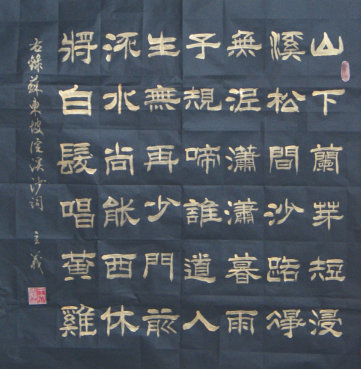 山下蘭芽短浸
溪松間沙路淨
無泥瀟瀟暮雨
子規啼誰道人
生無再少門前
流水尚能西休
將白髮唱黃雞
右錄蘇東坡浣溪沙詞